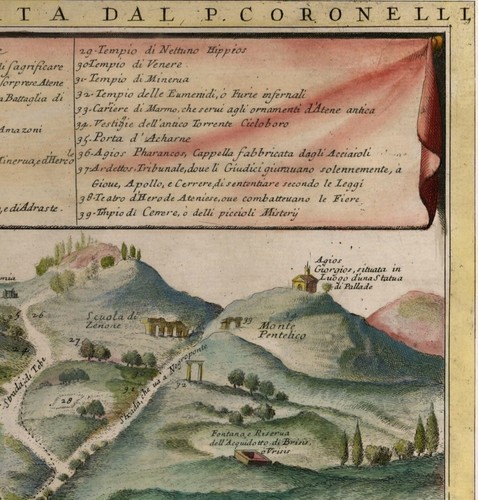 TA DAL P. CORONELLI
di sagrificare
Sorprese Atene
a Battaglia di
Amazoni
Minerua, ed Hercole
e, e di Adraste.
29. Tempio di Nettuno Hippios
30 Tempio di Venere
31. Tempio di Minerua
32. Tempio delle Eumenidi, o Furie infernali
33. Cariere di Marmo, che serui agli ornamenti d'Atene antica
34. Vestigie dell'antico Torrente Cicloboro
35. Porta d'Acharne
36. Agios Pharangos, Cappella fabbricata dagli Acciaioli
37. Ardettos, Tribunale, doue li Giudici giurauano solennemente, à
Gioue, Apollo, e Cerrere, di sententiare secondo le Leggi
38. Teatro d'Herode Ateniese, oue combattruano le Fiere
39. Tmpio di Cerrere, o delli piccioli Misterij
Agios
Giorgios, situata in
Luogo d'una Statua
di Pallade
25
26
Scuola di
Zenone
39
Monte
Pentelico
27
32
Strada di Tebe
Strada, che ua a Negroponte
28
Fontana, e Riserua
dell'Acquidotto di Brisis,
o Vrisis